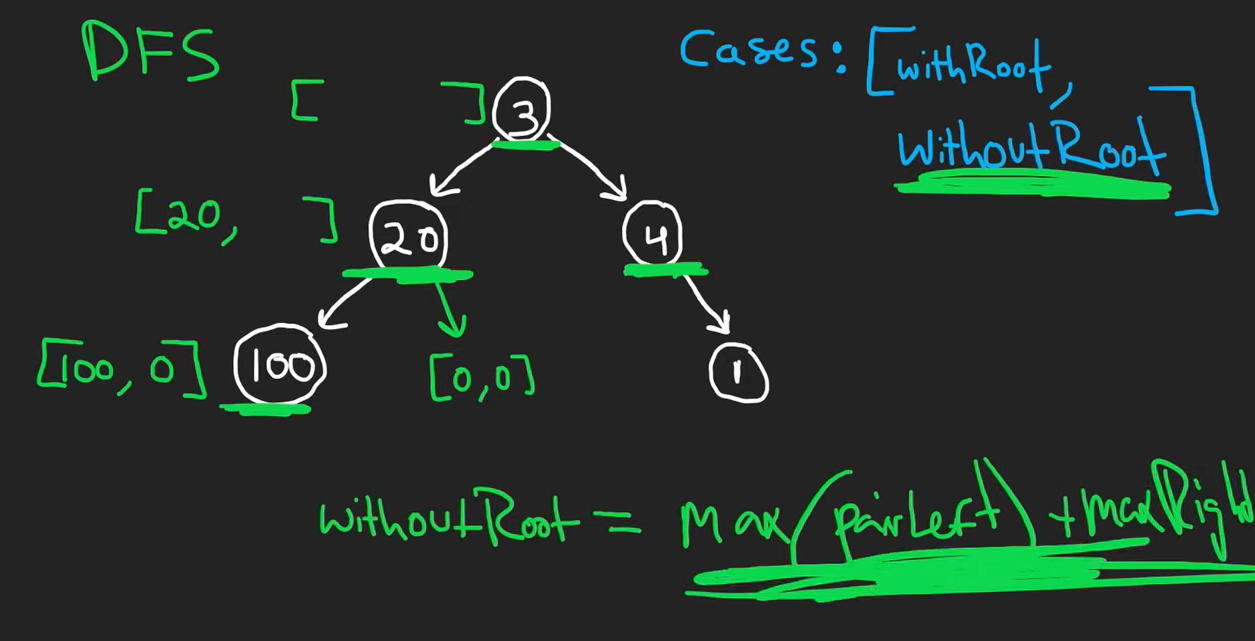 DFS
Cases: [withRoot,
WithoutRoot]
[ ] 3
[20, ] 20 4
[100, 0] 100 [0,0] 1
withoutRoot = Max(pairLeft) + maxRight